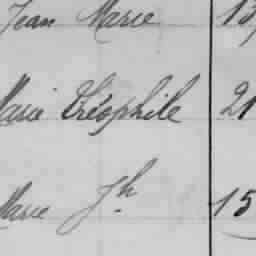 Jean Marie 13
Marie Théophile 21
Marie Jh 15